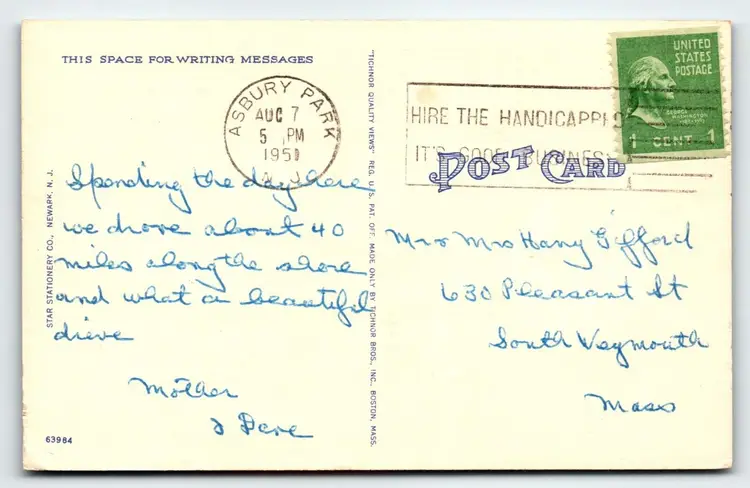 THIS SPACE FOR WRITING MESSAGES
ASBURY PARK
AUG 7
5 PM
1951
N. J.
Spending the day here
we drove about 40
miles along the shore
and what a beautiful
drieve
Mother
& Dave
63984
STAR STATIONERY CO., NEWARK, N. J.
"TICHNOR QUALITY VIEWS" REG. U. S. PAT. OFF. MADE ONLY BY TICHNOR BROS., INC., BOSTON, MASS.
HIRE THE HANDICAPPED
IT'S GOOD BUSINESS
POST CARD
UNITED
STATES
POSTAGE
GEORGE
WASHINGTON
1 CENT 1
Mr & Mrs Harry Gifford
630 Pleasant St
South Weymouth
Mass